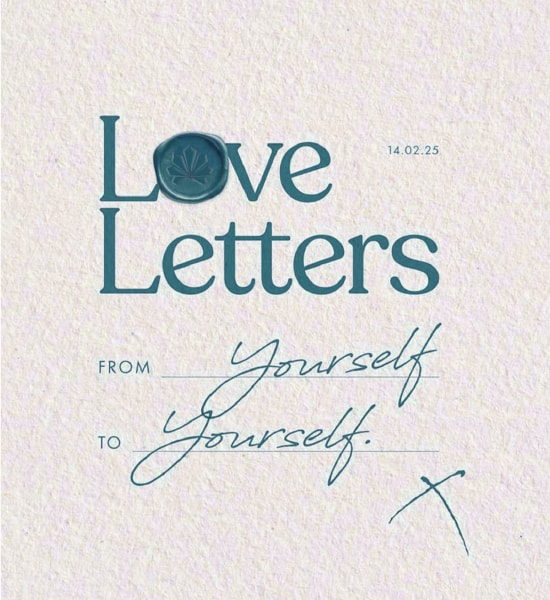 Love
14.02.25
Letters
FROM Yourself
TO Yourself.
X